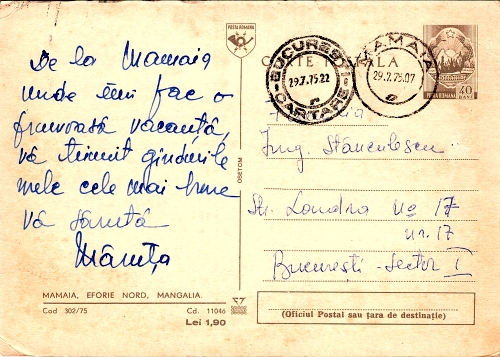 De la Mamaia
unde îmi fac o
frumoasă vacanță,
vă trimit gîndurile
mele cele mai bune
Vă sărută
MAMAIA, EFORIE NORD, MANGALIA.
Cod 302/75
Cd. 11046
Lei 1,90
OSETOM
POSTA ROMANA
CARTE POSTALA
BUCUREȘTI
29.7.75.22
CARTARE
MAMAIA
29.7.75.07
POSTA ROMANA
40
BANI
Ing. Stănculescu
Str. Londra No 17
nr. 17
București - Sector I
(Oficiul Postal sau țara de destinație)